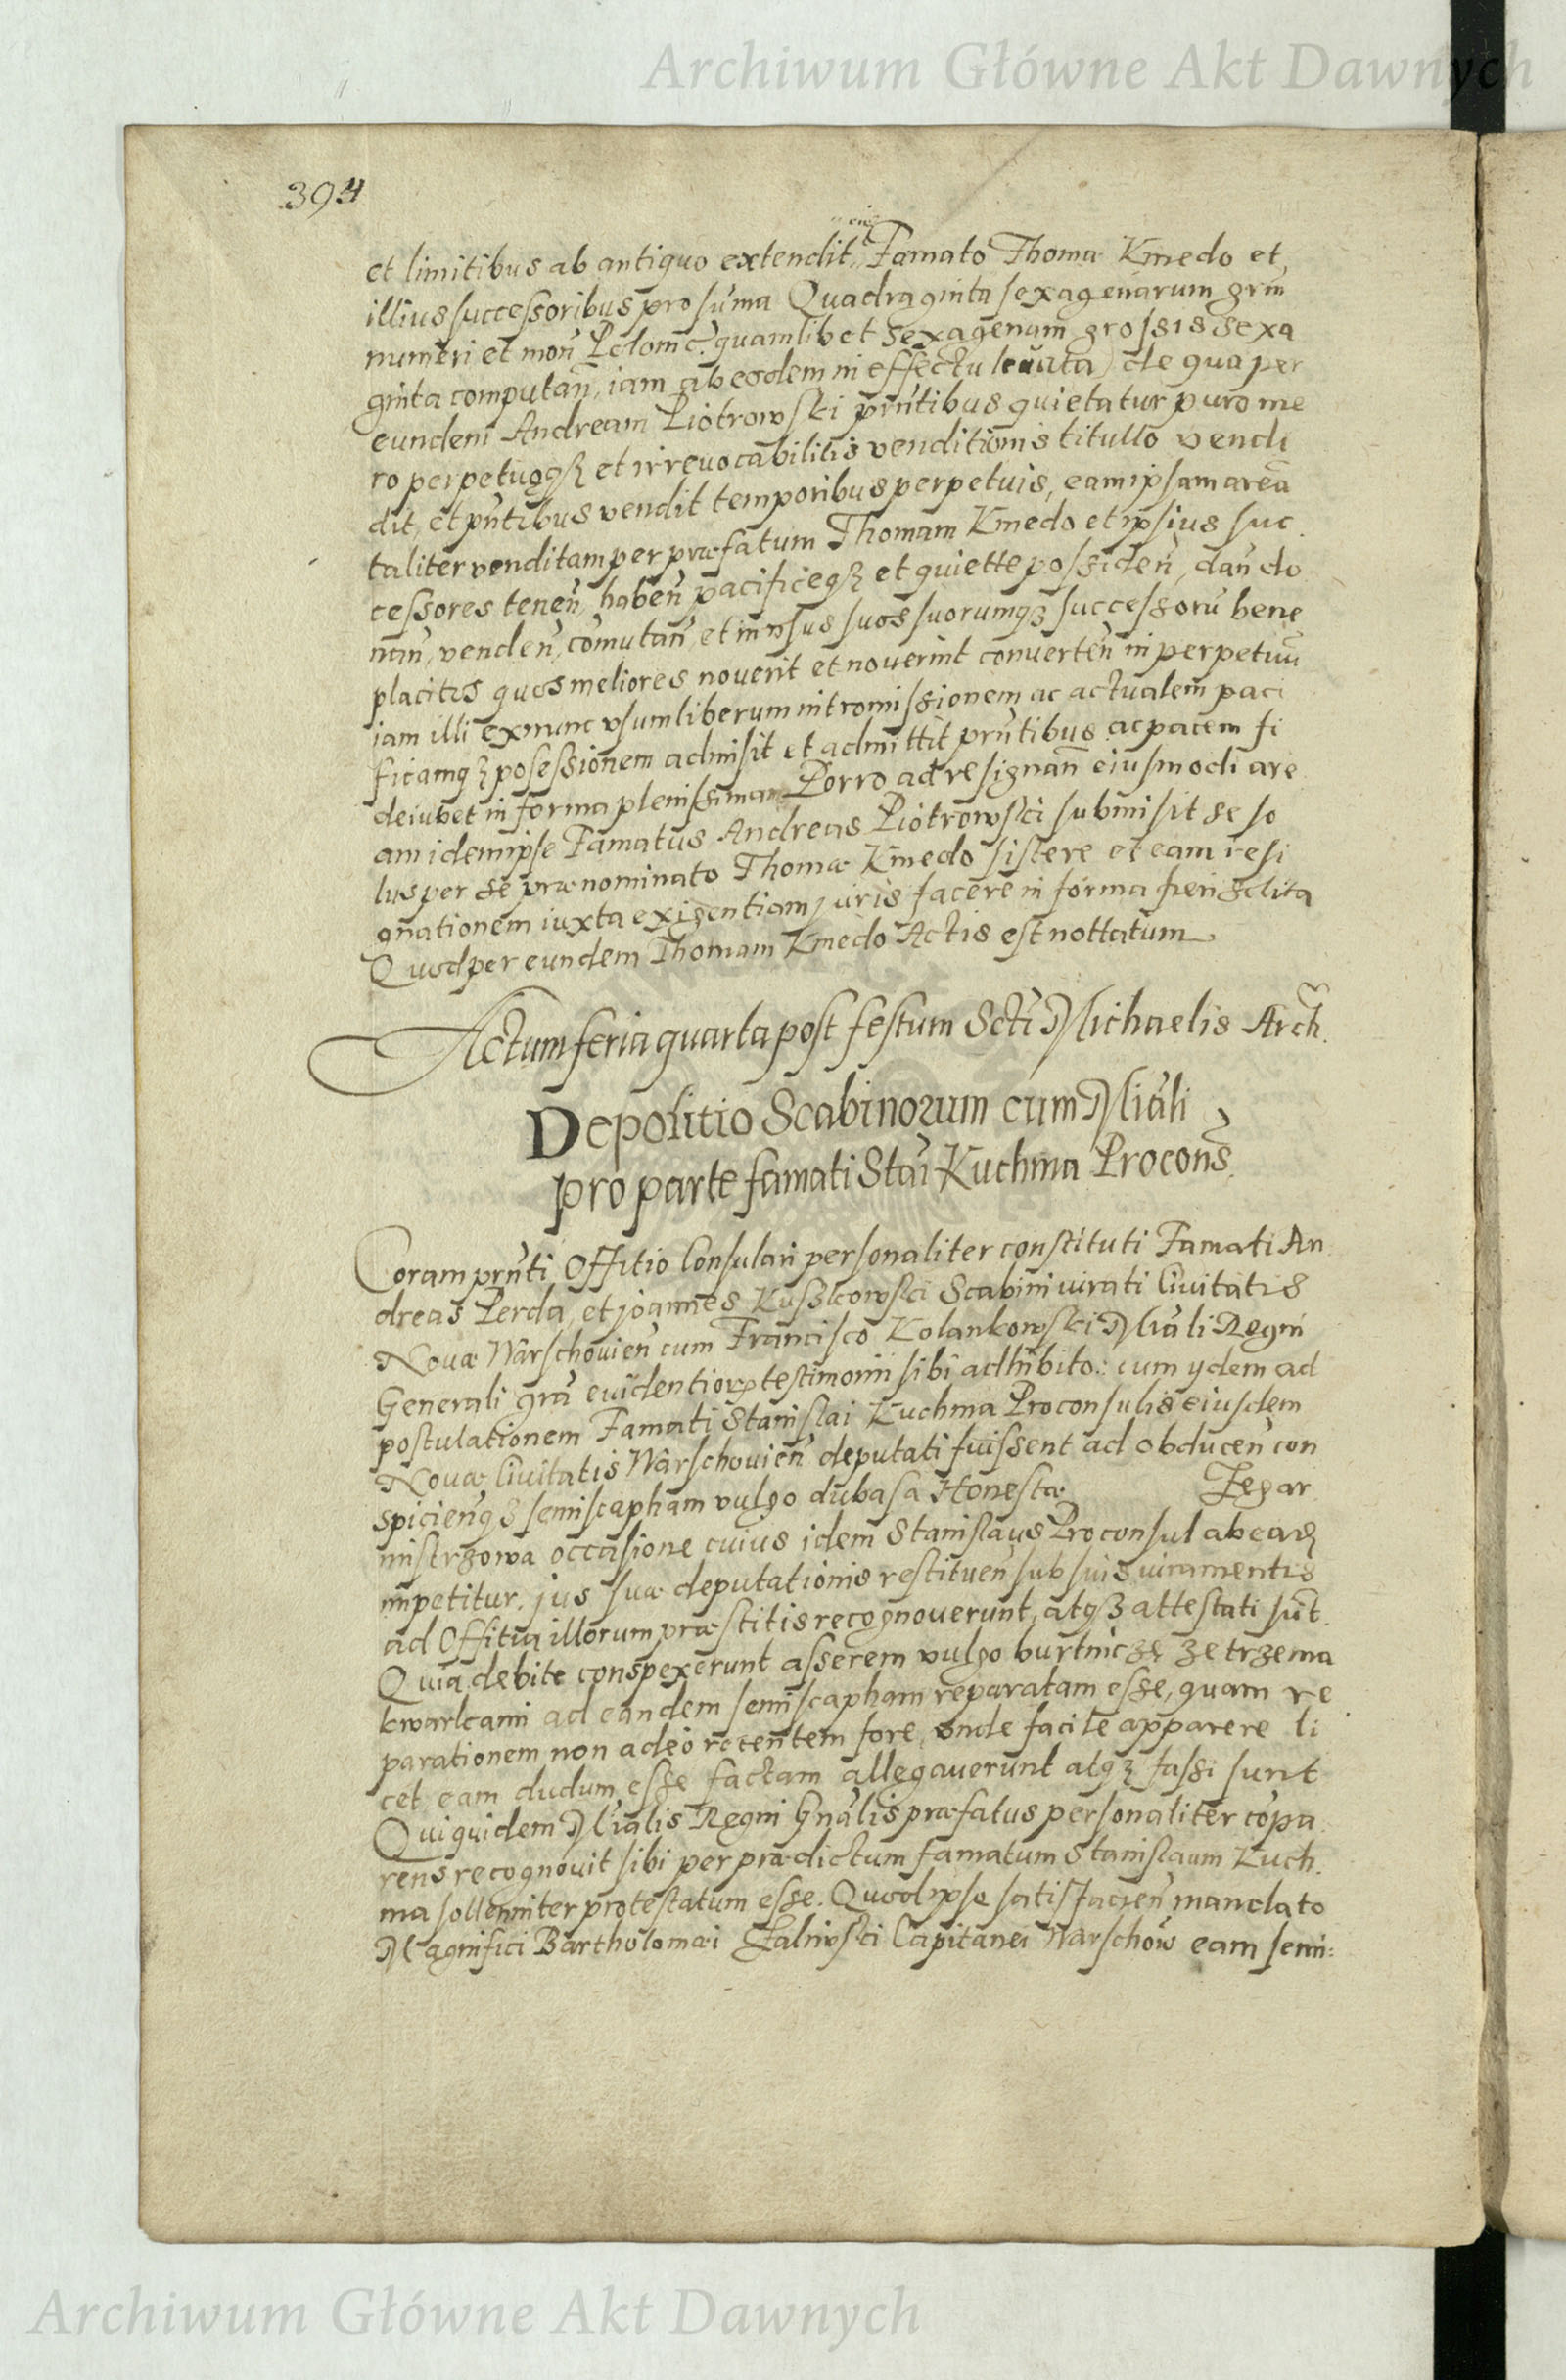 Archiwum Główne Akt Dawnych
394
et limitibus ab antiquo extendit, Famato Thoma Kmedo et
illius successoribus pro suma Quadraginta sexagenarum grm
numeri et moñ Polonic. quamlibet sexagenam grossis sexa
ginta computañ, iam ab eodem in effectu levata) de qua per
eundem Andream Piotrowski pñtibus quietatur puro me
ro perpetuoqȝ et irrevocabilitis venditionis titullo vendi
dit, et pñtibus vendit temporibus perpetuis, eam ipsam areã
taliter venditam per præfatum Thomam Kmedo et ipsius suc
cessores teneñ, habeñ pacificeqȝ et quiette possideñ, dañ do
nañ, vendeñ, comutañ, et in vsus suos suorumqȝ successorũ bene
placitos quos meliores noverit et noverint converteñ in perpetuũ
iam illi exnunc vsum liberum intromissionem ac actualem paci
ficamqȝ posessionem admisit et admittit pñtibus ac pacem fi
deiubet in forma plenissima Porro ad resignañ eiusmodi are
am idem ipse Famatus Andreas Piotrowski submisit se so
lus per se prænominato Thomæ Kmedo sistere et eam resi
gnationem iuxta exigentiam juris facere in forma fieri solita
Quod per eundem Thomam Kmedo Actis est nottatum
Actum feria quarta post festum Scti Michaelis Arch.
Depositio Scabinorum cum Mĩali
pro parte famati Stãi Kuchma Procons.
Coram pñti Offitio Consulari personaliter constituti Famati An
dreas Perda, et joannes Kuszkowski Scabini iurati Civitatis
Novæ Warschovieñ cum Francisco Kolankowski Mĩali Regni
Generali grã evidentior testimonii sibi adhibito: cum ydem ad
postulationem Famati Stanislai Kuchma Proconsulis eiusdem
Novæ Civitatis Warschovieñ deputati fuissent ad obduceñ con
spicieñqȝ semiscapham vulgo dubasa Honestæ Zegar
mistrzowa occasione cuius idem Stanislaus Proconsul ab eaȝ
impetitur. jus suæ deputationis restitueñ sub suis iuramentis
ad Offitia illorum præstitis recognoverunt, atqȝ attestati sũt.
Quia debite conspexerunt asserem vulgo burtniczę ze trzema
kwarkami ad eandem semiscapham reparatam esse, quam re
parationem non adeo recentem fore, vnde facile apparere li
cet eam dudum esse factam allegaverunt atqȝ fassi sunt
Qui quidem Mĩalis Regni Gñalis præfatus personaliter cõpa
rens recognovit sibi per prædictum famatum Stanislaum Kuch
ma sollenniter protestatum esse. Quod ipse satisfacieñ mandato
Magnifici Bartholomæi Capitanei Warschow eam semi:
Archiwum Główne Akt Dawnych